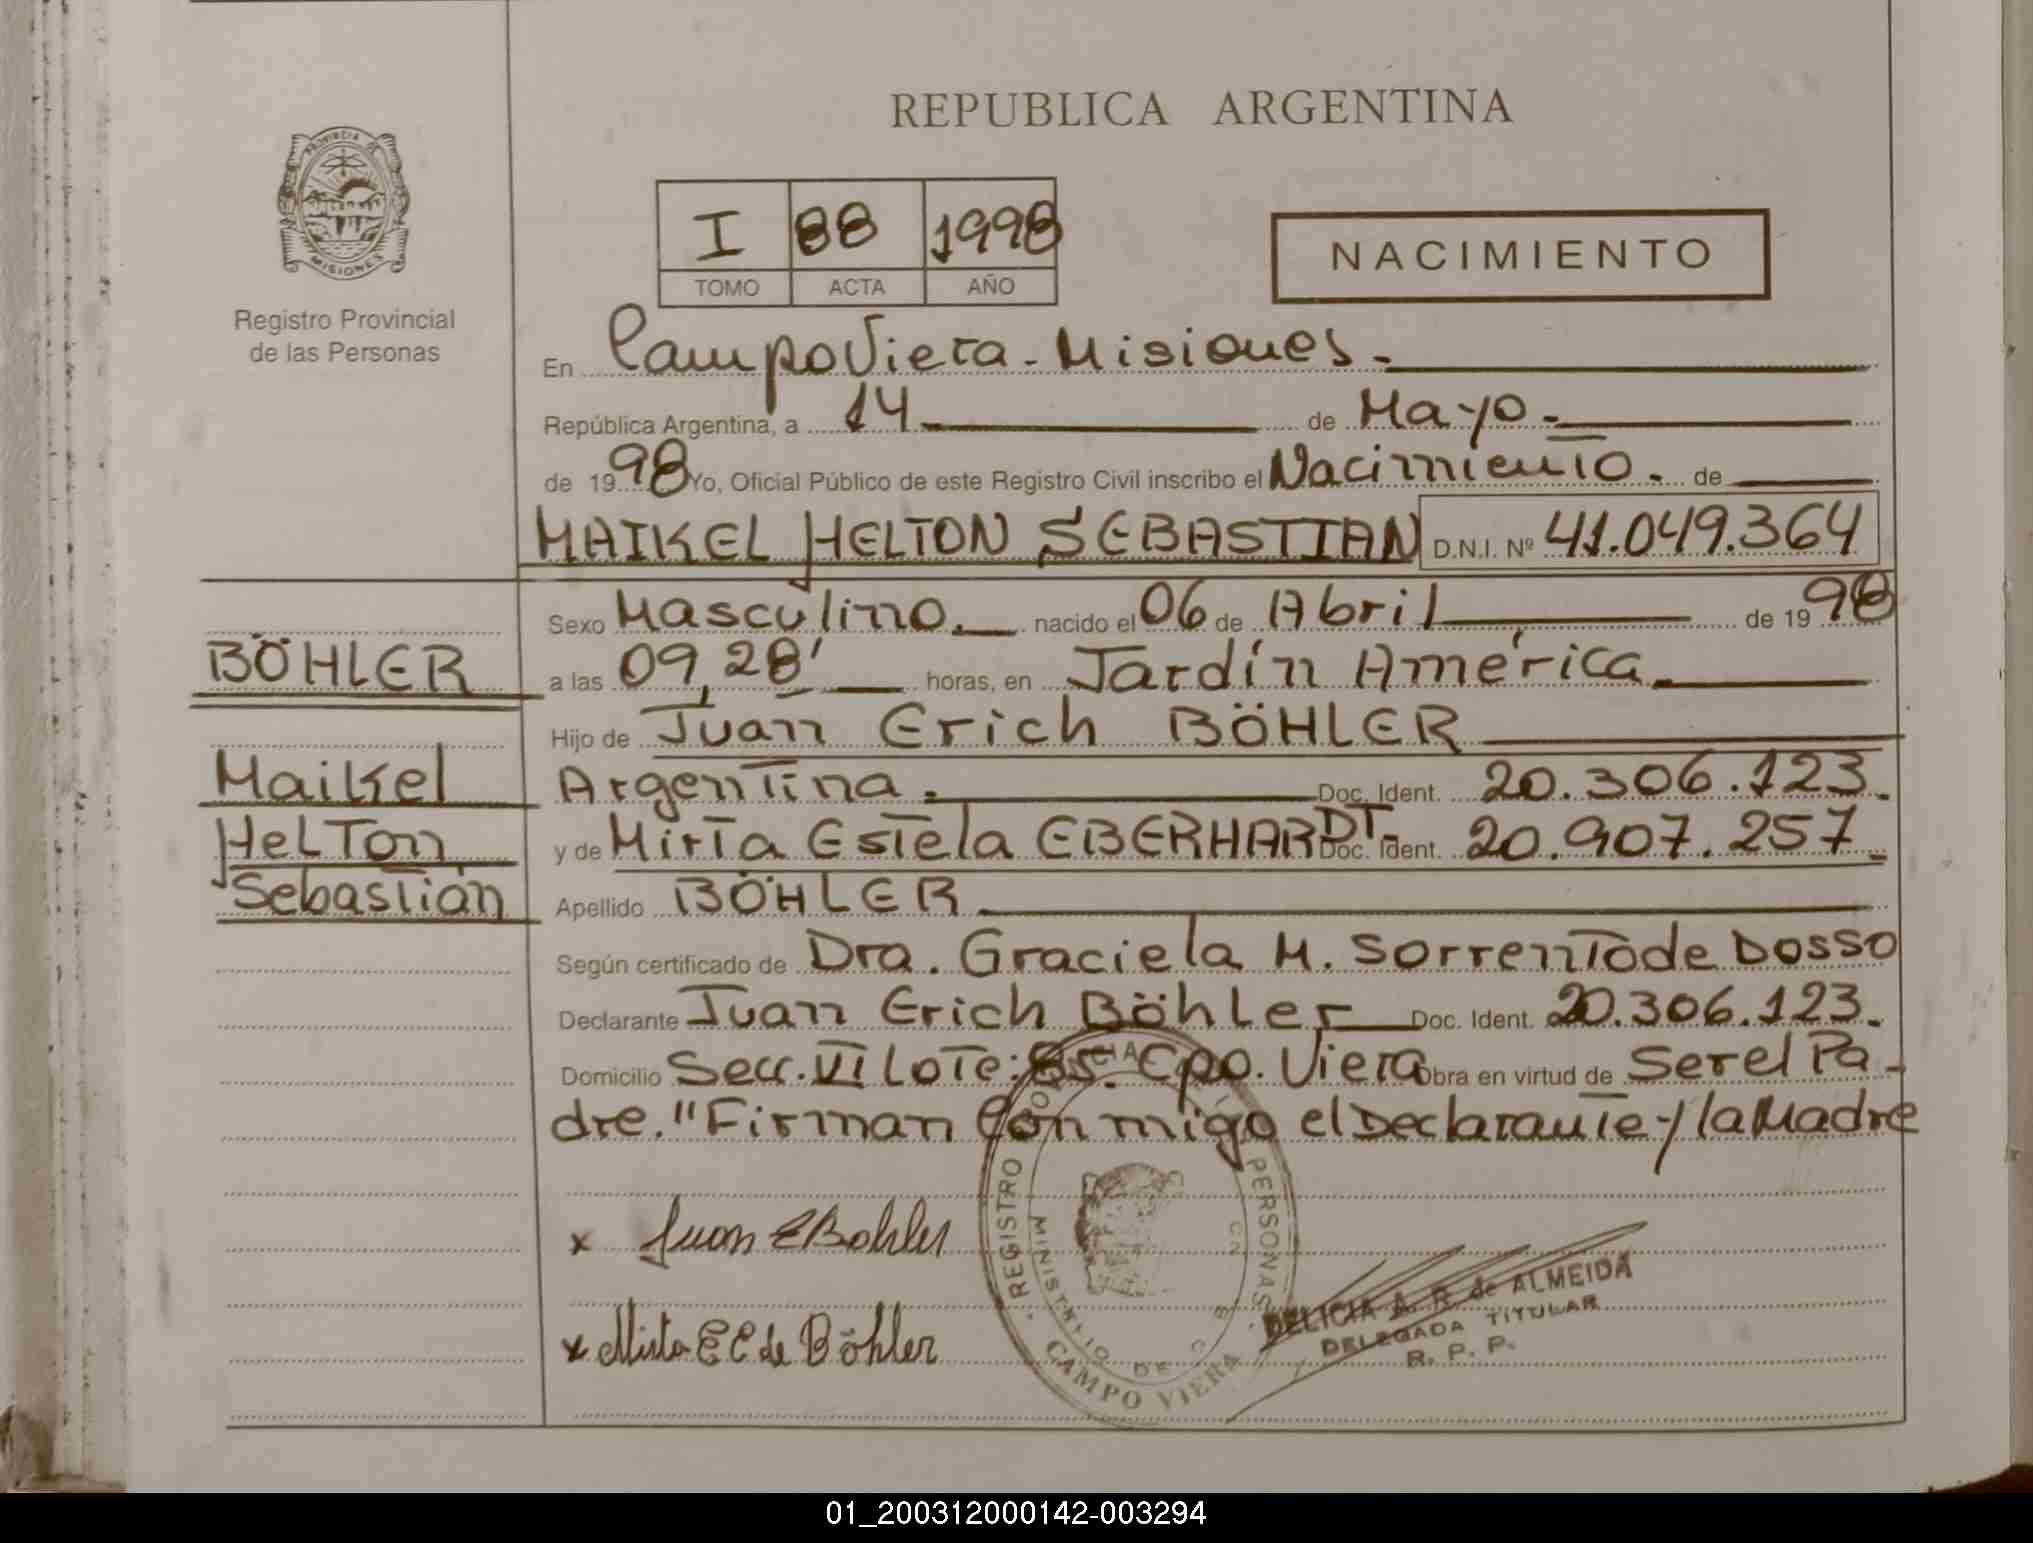 REPUBLICA ARGENTINA
PROVINCIA DE MISIONES
Registro Provincial
de las Personas
I 88 1998
TOMO ACTA AÑO
NACIMIENTO
En Campo Viera - Misiones.
República Argentina, a 14 de Mayo.
de 1998 Yo, Oficial Público de este Registro Civil inscribo el Nacimiento. de
MAIKEL HELTON SEBASTIAN D.N.I. Nº 41.049.364
Sexo Masculino. nacido el 06 de Abril de 1998
BÖHLER
a las 09,28' horas, en Jardín América.
Hijo de Juan Erich BÖHLER
Maikel
Argentina. Doc. Ident. 20.306.123.
Helton
y de Mirta Estela EBERHARDT- Doc. Ident. 20.907.257.
Sebastián
Apellido BÖHLER
Según certificado de Dra. Graciela M. Sorrento de Dosso
Declarante Juan Erich Böhler Doc. Ident. 20.306.123.
Domicilio Secc. VI Lote: 85. Cpo. Viera Obra en virtud de Ser el Pa-
dre. "Firman Conmigo el Declarante y la Madre
x Juan E Bohler
x Mirta E E de Böhler
REGISTRO PERSONAS
MINISTERIO DE
CAMPO VIERA
DELICIA A. R. de ALMEIDA
DELEGADA TITULAR
R. P. P.
01_200312000142-003294